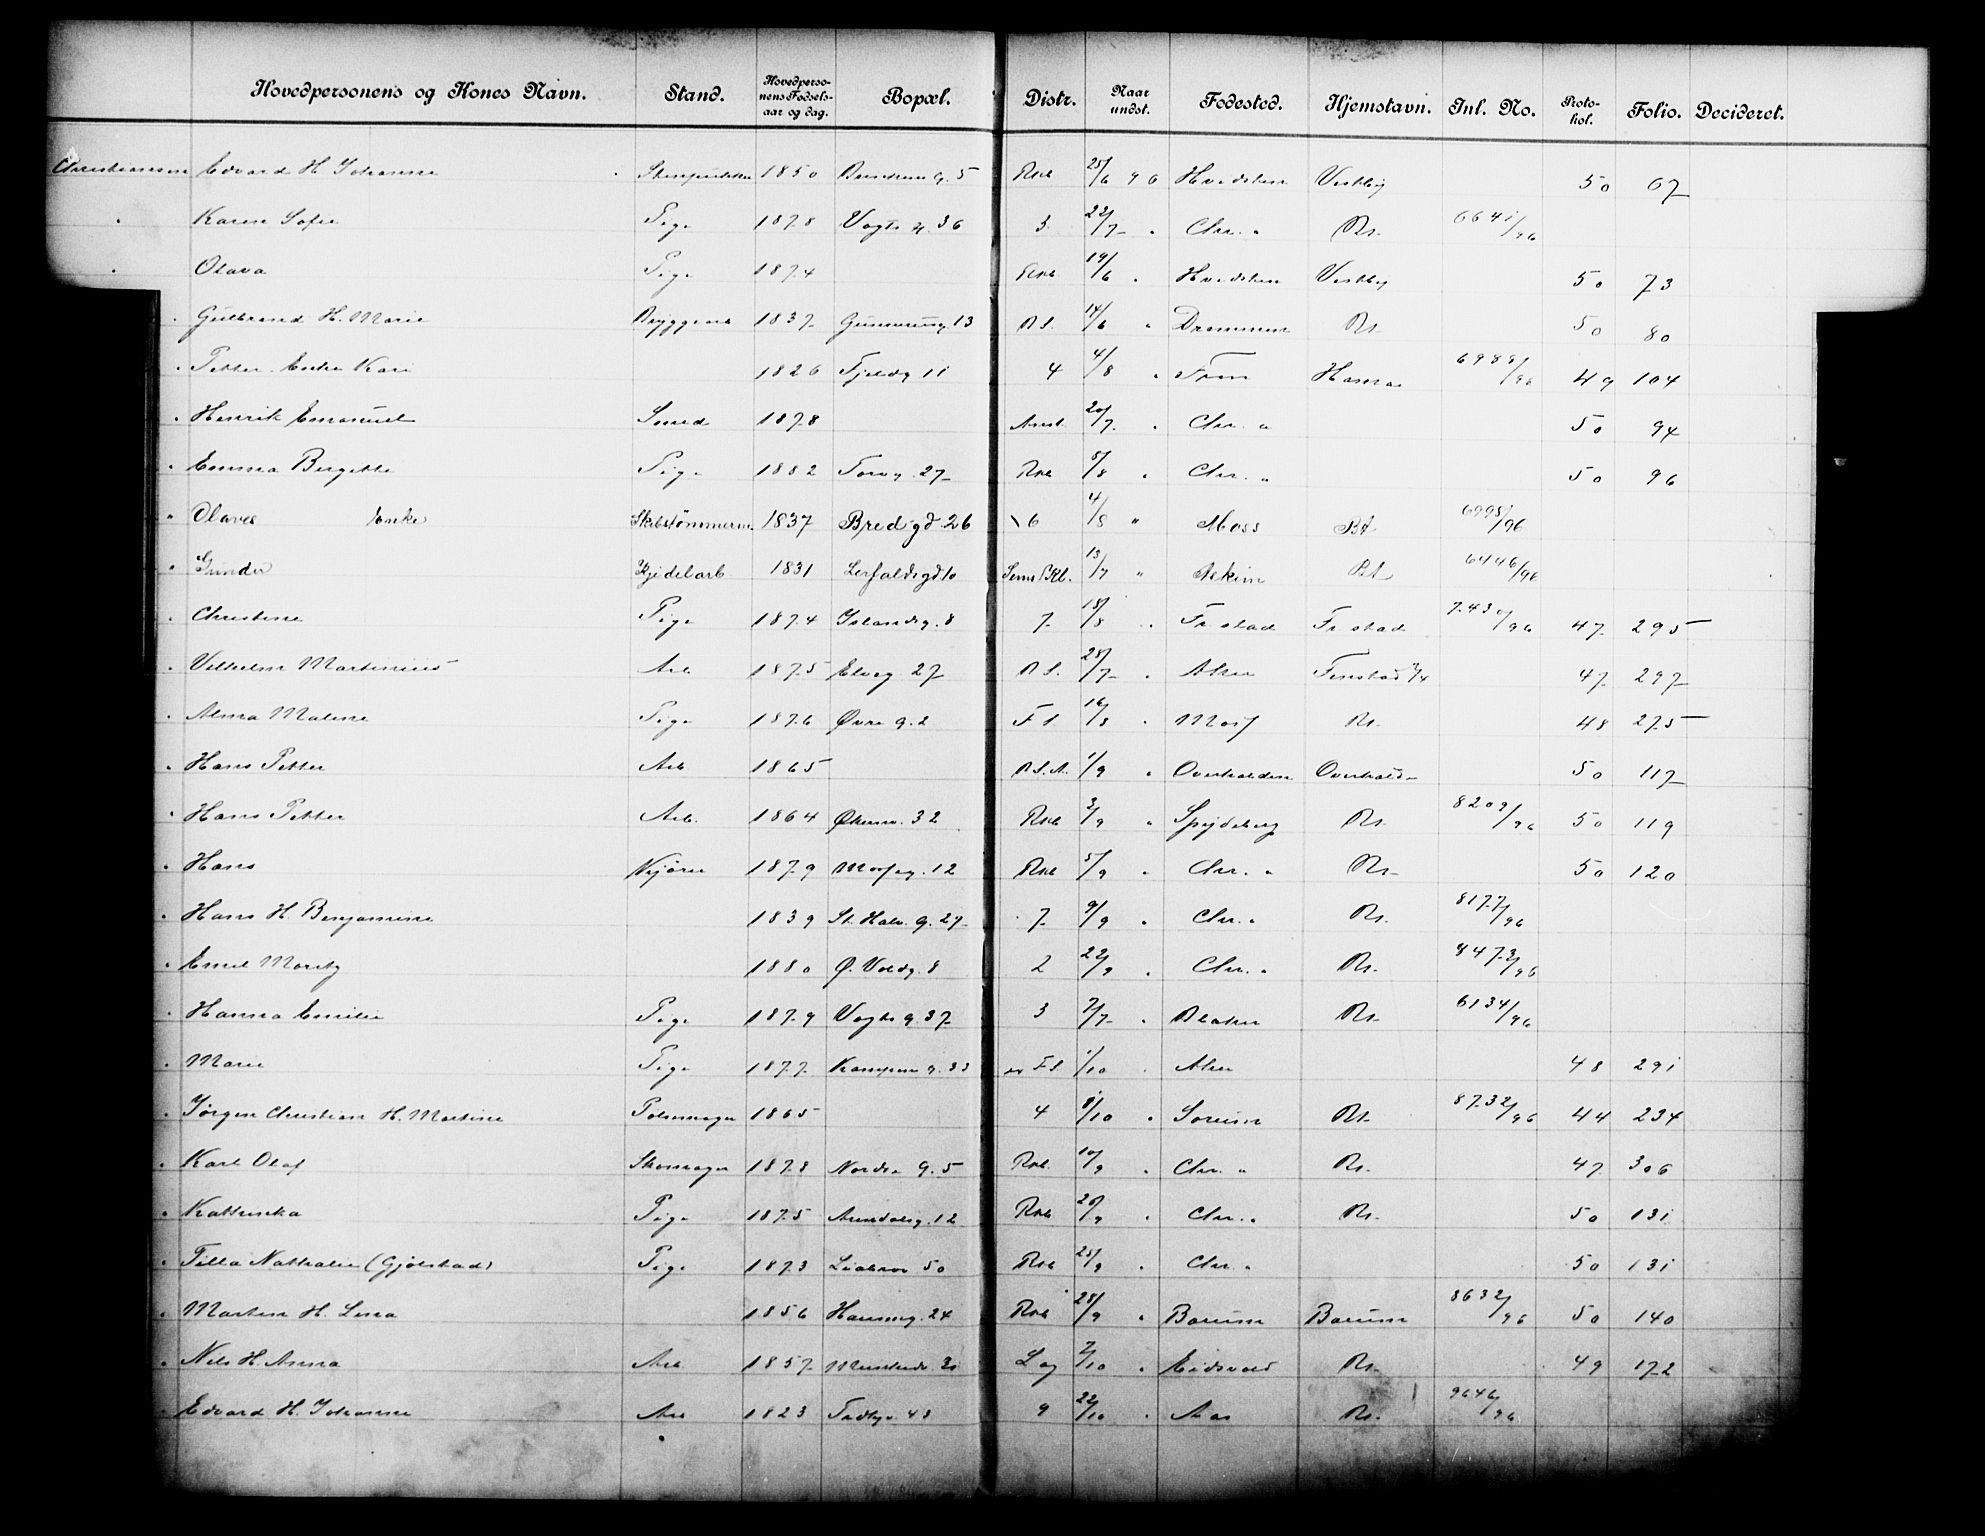 Hovedpersonens og Kones Navn. Stand. Hovedperso-nens Fødsels-aar og dag. Bopæl. Distr. Naar undst. Fødested. Hjemstavn. Inl. No. Proto-kol. Folio. Decideret.
Christiansen Edvard H. Johanne 1850 g. 5 Rkb 25/6 96 Hvidsten Vestby 50 67
" Karen Sofie Pige 1878 Vogts g. 36 3 22/7 " Chr. a Rs. 6641/96
" Olava Pige 1874 Rkb 19/6 " Hvidsten Vestby 50 73
" Gulbrand H. Marie Bryggearb 1837 13 R S. 14/6 " Drammen Rs. 50 80
" Petter Enke Kari 1826 Fjeldg 11 4 4/8 " Hamar /96 49 104
" Henrik Emanuel Smed 1878 20/7 " Chr. a 50 94
" Emma Bergitte Pige 1882 Torvg. 27 Rkb 5/8 " Chr. a 50 96
" Olaves Enke Skibstømmerm. 1837 Bredgd. 26 6 4/8 " Moss 6995/96
" Gunder Kjedelarb. 1831 Lerfaldsgd 10 13/7 " Askim 6446/96
" Christine Pige 1874 Islandsg. 8 7 18/8 " Frstad Frstad 7430/96 47 295
" Vilhelm Martinius Arb 1875 Elveg 27 R S. 28/7 " Aker 47 297
" Alma Maline Pige 1876 Øvre g. 2 F S. 16/8 " Moss Rs. 48 275
" Hans Petter Arb 1865 R.S.A. 1/9 " Overhalden Overhald 50 117
" Hans Petter Arb. 1864 Økernv. 32 Rkb 3/9 " Spydeberg Rs. 8209/96 50 119
" Hans Visjører 1879 Mosseg. 12 Rkb 5/9 " Chr. a Rs. 50 120
" Hans H. Benjamine 1839 St. Halv. g. 27 7 9/9 " Chr. a Rs. 8177/96
" Emil Moritz 1880 Ø. Voldg. 8 2 22/9 " Chr. a Rs. 8473/96
" Hanna Emilie Pige 1879 Vogts g. 37 3 7/7 " Blaker Rs. 6134/96
" Marie Pige 1877 Kampens g. 33 F S 1/10 " Aker 48 291
" Jørgen Christian H. Martine Pølsemager 1865 4 8/10 " Sørum Rs. 8732/96 44 234
" Karl Olaf Skomager 1878 Nordre g. 5 Rkb. 10/9 " Chr. a Rs. 47 306
" Kathinka Pige 1875 Arendalsg. 12 Rkb 20/9 " Chr. a Rs. 50 131
" Tilla Nathalie (Gjølstad) Pige 1873 50 Rkb 25/9 " Chr. a 50 131
" Martin H. Lina 1856 Hausmg. 24 Rkb 28/9 " Bærum Bærum 8632/96 50 140
" Nils H. Anna Arb 1857 Lag 2/10 " Eidsvold Rs. 49 172
" Edvard H. Johanne Arb 1823 Toftbyv. 43 9 22/10 " Aas Rs. 9646/96